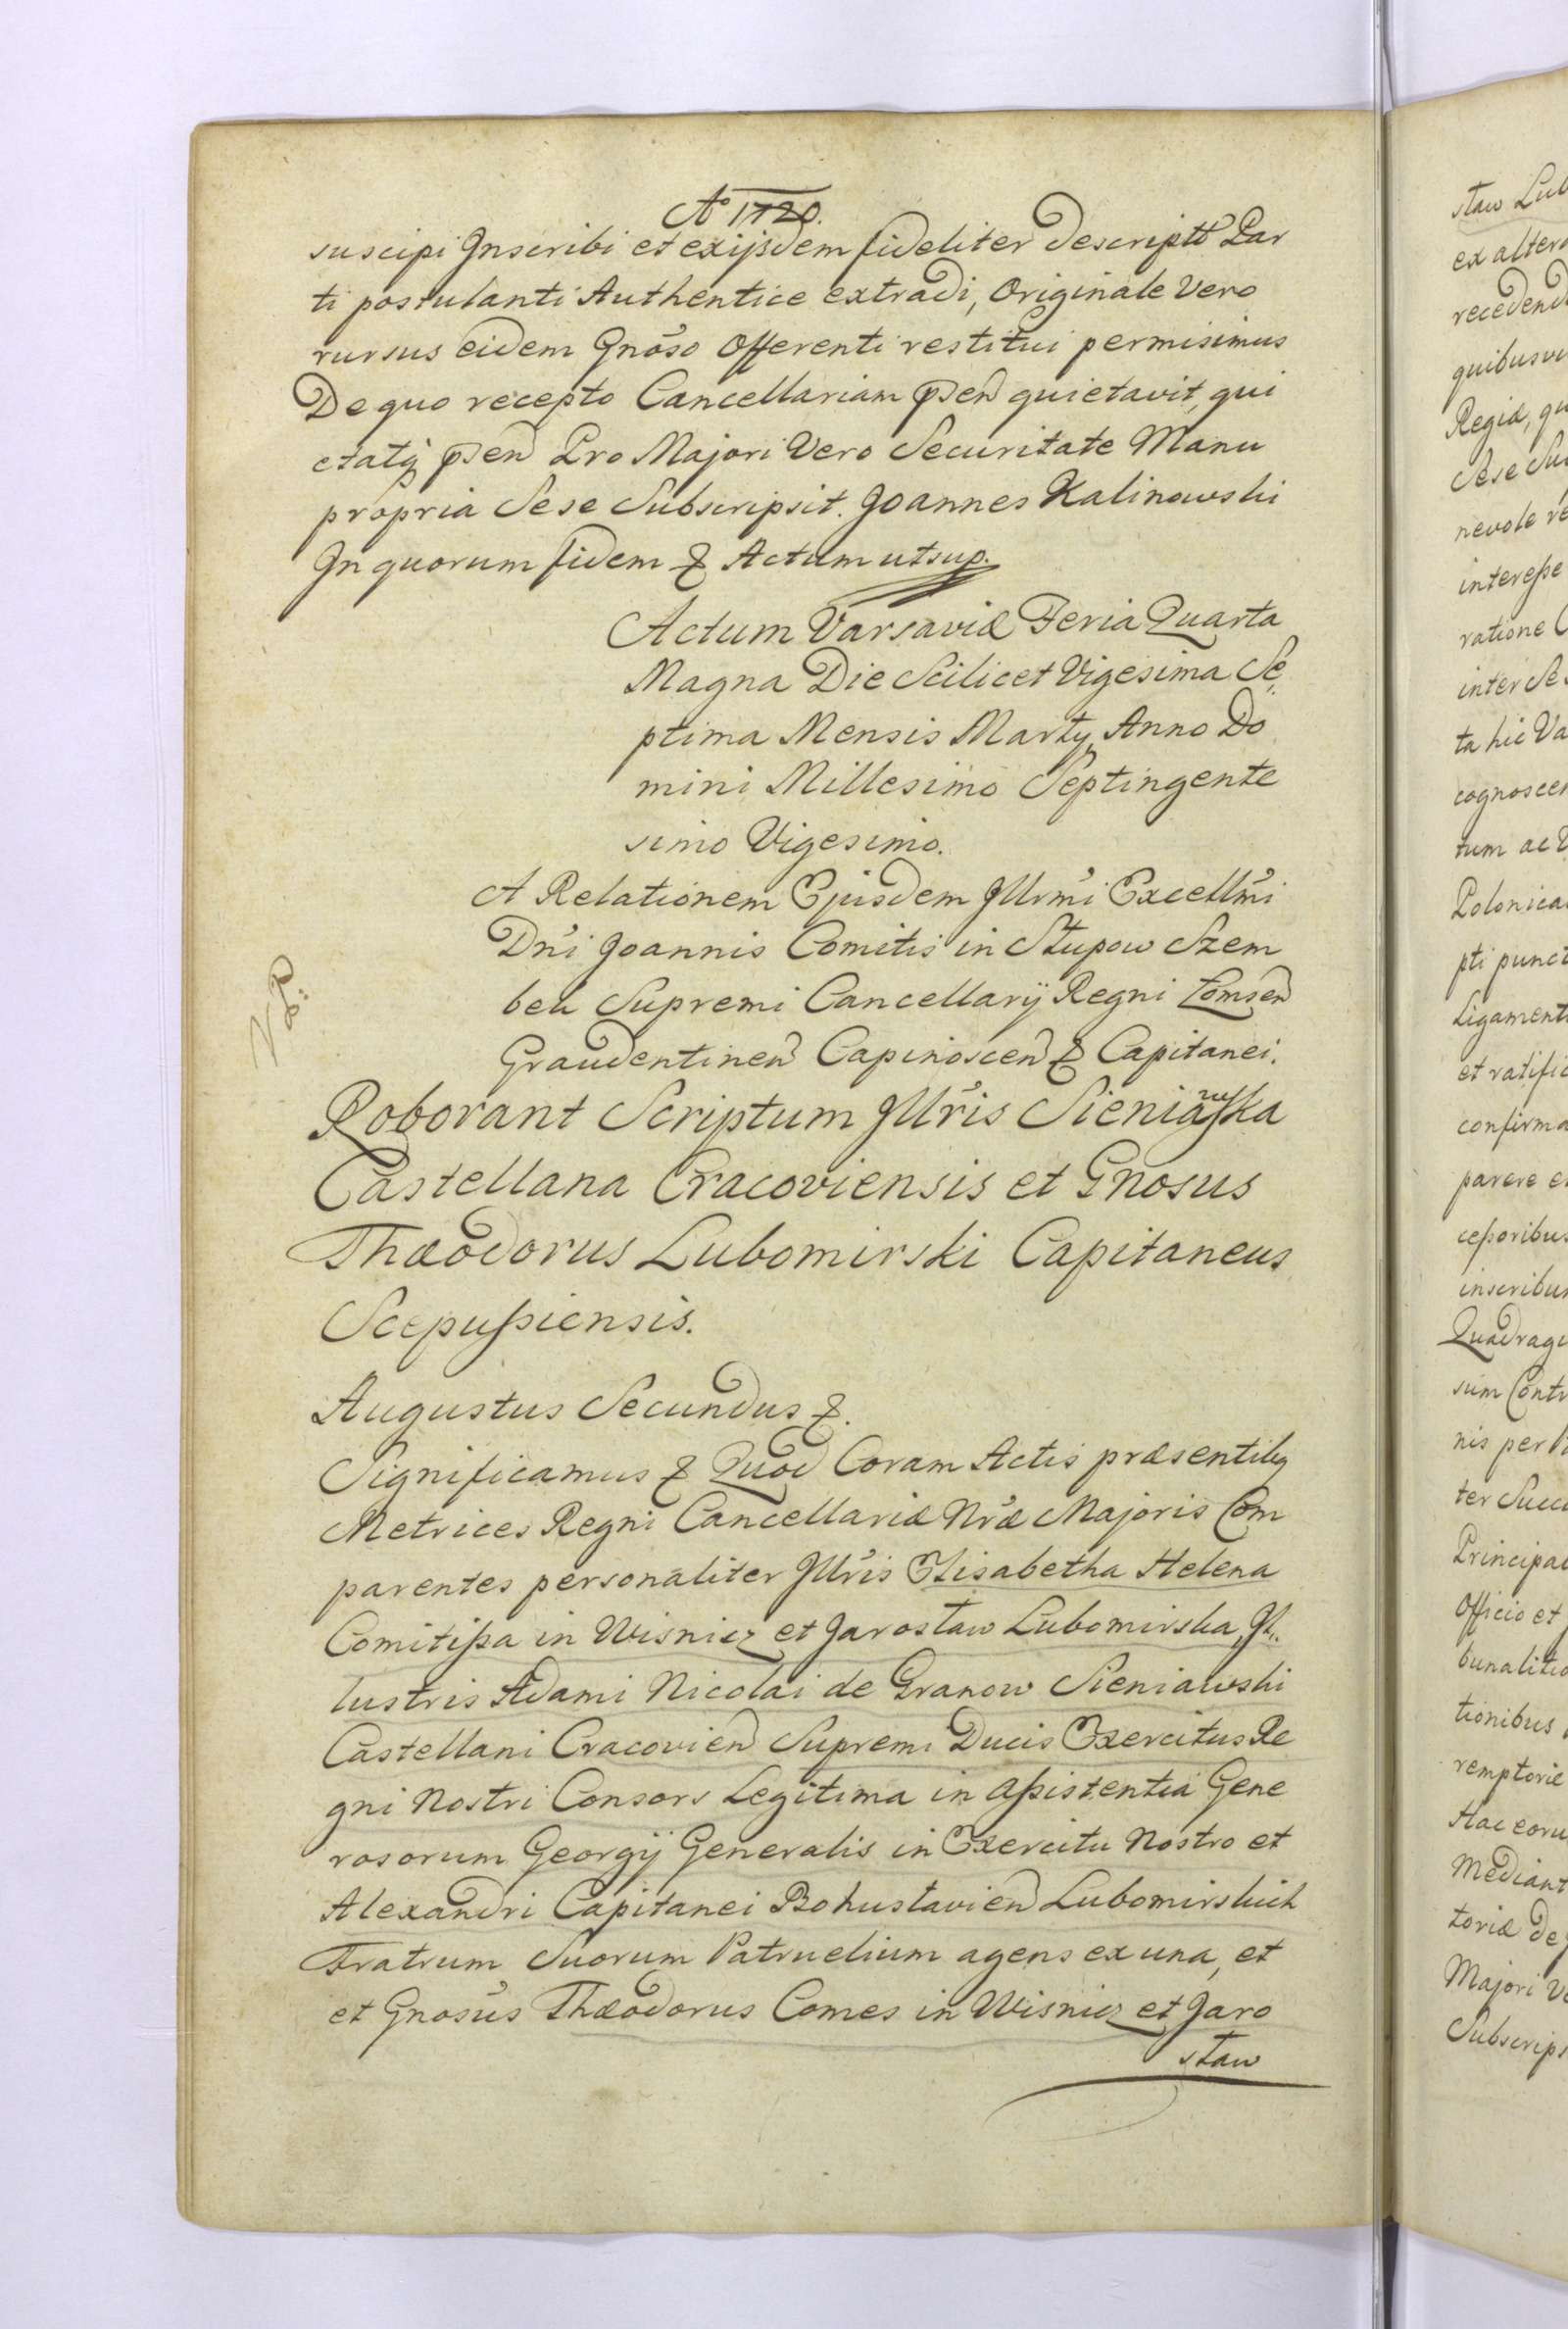 Ao 1720.
suscipi Inscribi et exijsdem fideliter descriptū Par
ti postulanti Authentice extradi, Originale Vero
rursus eidem Gnõso Offerenti restitui permisimus
De quo recepto Cancellariam p̃sen quietavit, qui
etatq p̃sen Pro Majori Vero Securitate Manu
propria Sese Subscripsit. Joannes Kalinowski
In quorum fidem & Actum ut sup.
Actum Varsaviæ Feria Quarta
Magna Die Scilicet Vigesima Se
ptima Mensis Martij Anno Do
mini Millesimo Septingente
simo Vigesimo.
A Relationem Ejusdem Illrmi Excellmi
Dni Joannis Comitis in Słupow Szem
bek Supremi Cancellarij Regni Łomsen
Graudentinen Capinoscen & Capitanei.
NB:
Roborant Scriptum Illris Sieniawska
Castellana Cracoviensis et Gnosus
Thæodorus Lubomirski Capitaneus
Scepussiensis.
Augustus Secundus &.
Significamus & Quod Coram Actis præsentibq
Metrices Regni Cancellariæ Nræ Majoris Com
parentes personaliter Illris Elisabetha Helena
Comitissa in Wisnicz et Jarosław Lubomirska, Il
lustris Adami Nicolai de Granow Sieniawski
Castellani Cracovien Supremi Ducis Exercitus Re
gni Nostri Consors Legitima in Assistentia Gene
rosorum Georgij Generalis in Exercitu Nostro et
Alexandri Capitanei Bohuslavien Lubomirskich
Fratrum Suorum Patruelium agens ex una, et
et Gnosus Thæodorus Comes in Wisnicz et Jaro
sław
sław Lub
ex altera
recedend
quibusvi
Regiæ, qu
Sese Su
nevole re
interesse
ratione C
inter Se
ta hic Va
cognoscen
tum ac V
Polonica
pti punct
Ligament
et ratific
confirma
parere e
cessoribus
inscribun
Quadragi
sum Contr
nis per
ter Succ
Principal
Officio et
bunalitio
tionibus
remptorie
Hac eoru
Mediant
toriæ de
Majori Ve
Subscrips